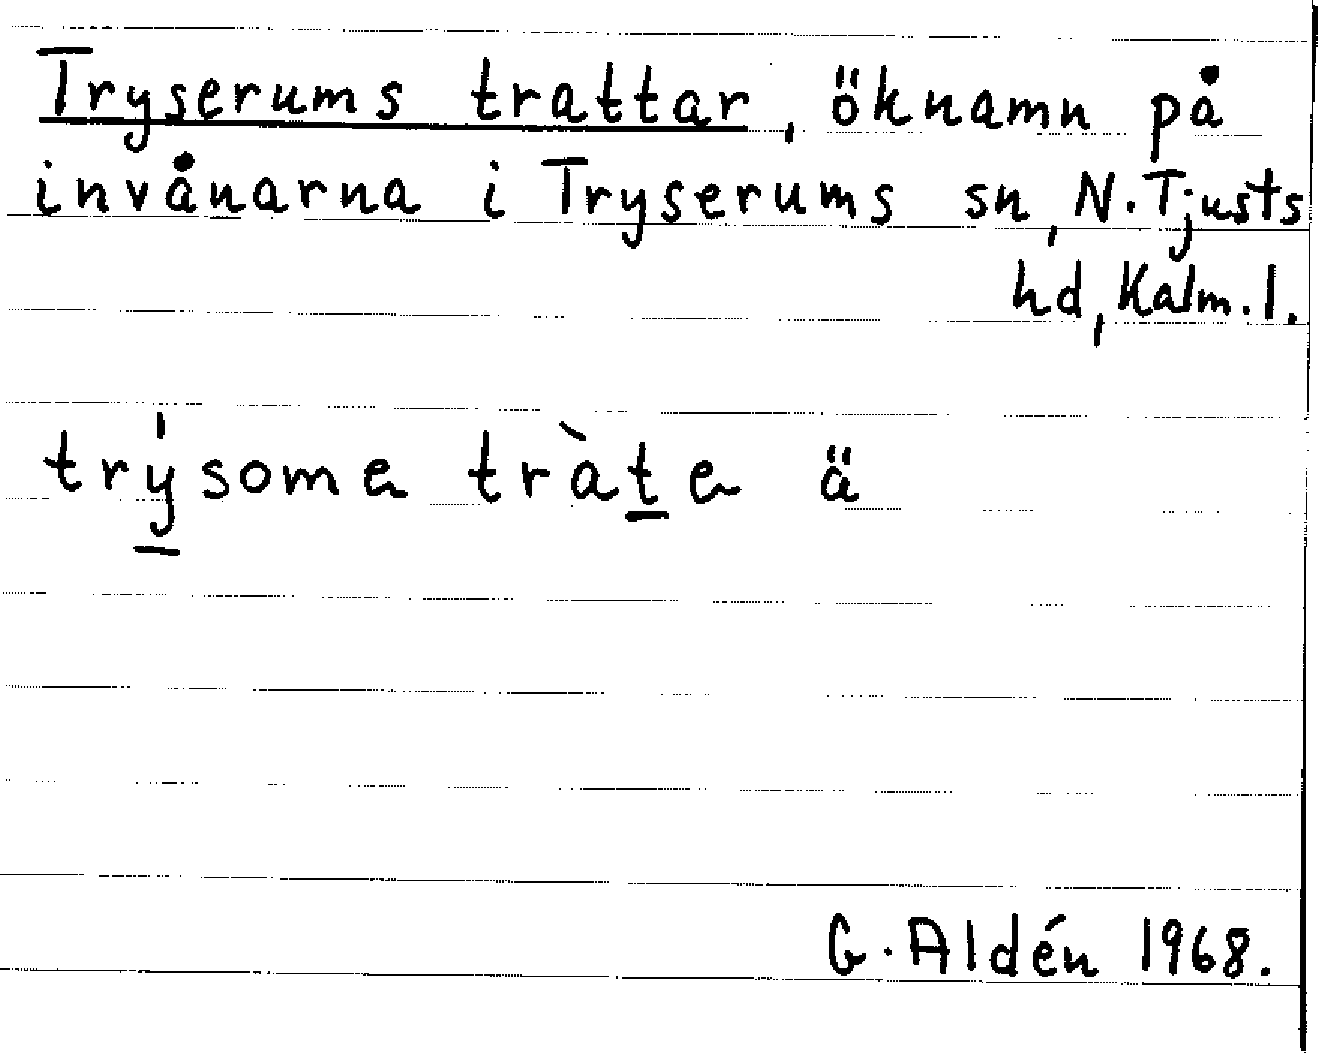 Tryserums trattar, öknamn på
invånarna i Tryserums sn, N. Tjusts
hd, Kalm. l.
trýsome tràte ä
G. Aldén 1968.